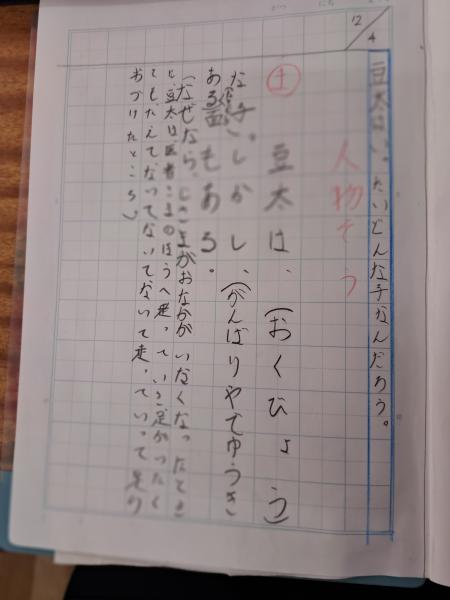 12/4
豆太はいったいどんな子なんだろう。
人物ぞう
土 豆太は、(おくびょう)
な子。しかし、(がんばりやでゆうき)
ある面もある。
(なぜなら、じさまがおなかがいたくなったとき
に、豆太は医者さまのほうへ走っていき足がつたく
てもたえてないてないてないて走っていって足り
おりたところ)